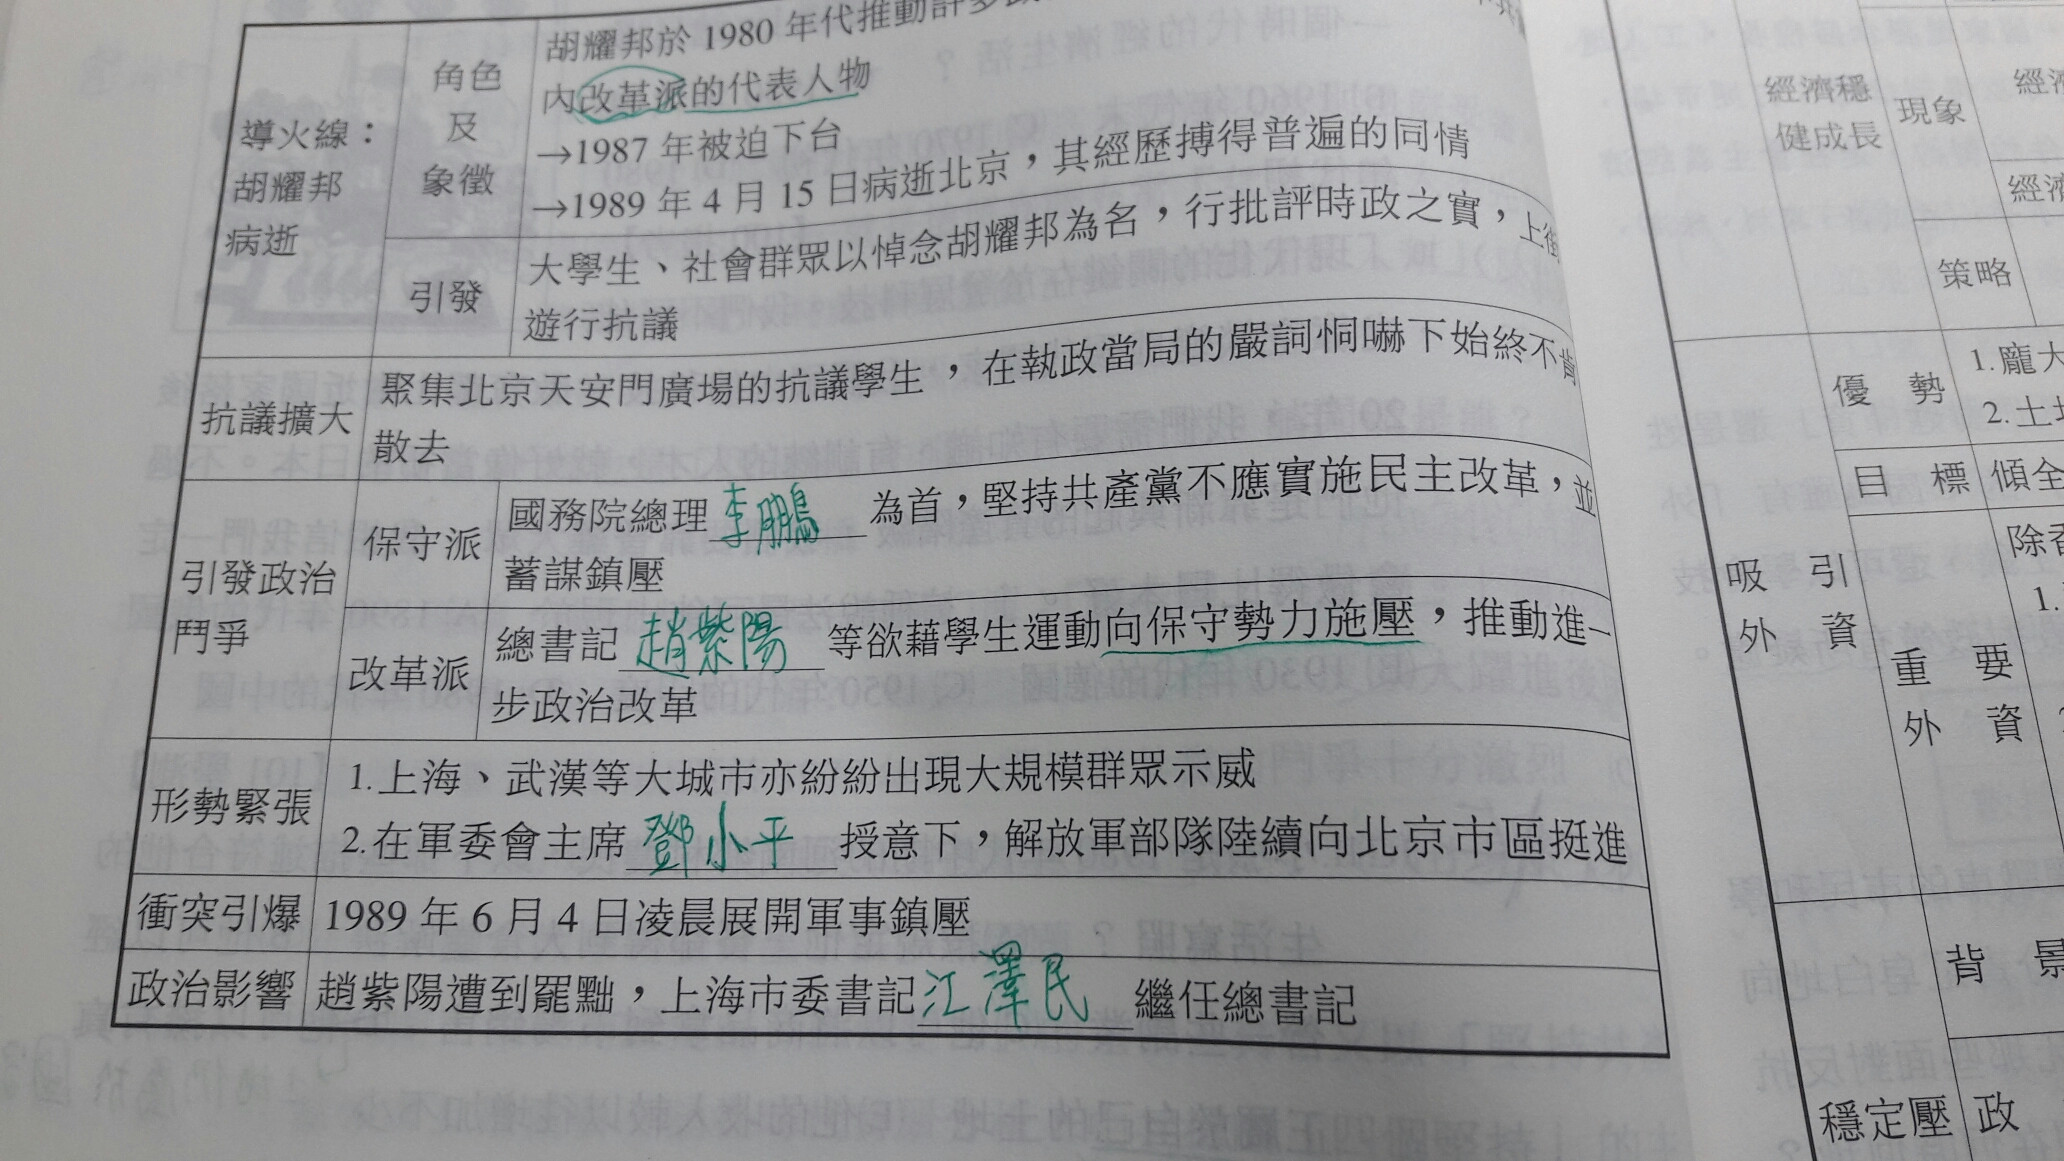 導火線：
胡耀邦
病逝
角色
及
象徵
胡耀邦於 1980 年代推動許多
內改革派的代表人物
→1987 年被迫下台
→1989 年 4 月 15 日病逝北京，其經歷搏得普遍的同情
引發
大學生、社會群眾以悼念胡耀邦為名，行批評時政之實，上街
遊行抗議
抗議擴大
聚集北京天安門廣場的抗議學生，在執政當局的嚴詞恫嚇下始終不肯
散去
引發政治
鬥爭
保守派
國務院總理李鵬為首，堅持共產黨不應實施民主改革，並
蓄謀鎮壓
改革派
總書記趙紫陽等欲藉學生運動向保守勢力施壓，推動進一
步政治改革
形勢緊張
1.上海、武漢等大城市亦紛紛出現大規模群眾示威
2.在軍委會主席鄧小平授意下，解放軍部隊陸續向北京市區挺進
衝突引爆
1989 年 6 月 4 日凌晨展開軍事鎮壓
政治影響
趙紫陽遭到罷黜，上海市委書記江澤民繼任總書記
經濟穩
健成長
現象
經濟
經濟
策略
吸引
外資
優勢
1.龐大
2.土地
目標
傾全
重要
外資
除香
1.
背景
穩定壓
政